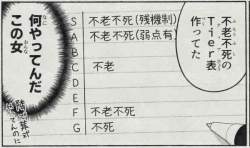 不老不死の
Tier表
作ってた
S 不老不死(残機制)
A 不老不死(弱点有)
B
C 不老
D
E
F 不老不死
G 不死
何やってんだ
この女